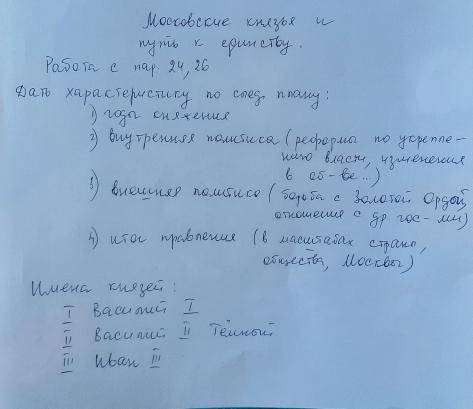 Московские князья и
путь к единству.
Работа с пар. 24, 26
Дать характеристику по след. плану:
1) годы княжения
2) внутренняя политика (реформы по укрепле-
нию власти, изменения
в об-ве...)
3) внешняя политика (борьба с Золотой Ордой,
отношения с др. гос-ми)
4) итог правления (в масштабах страны,
общества, Москвы)
Имена князей:
I Василий I
II Василий II Тёмный
III Иван III